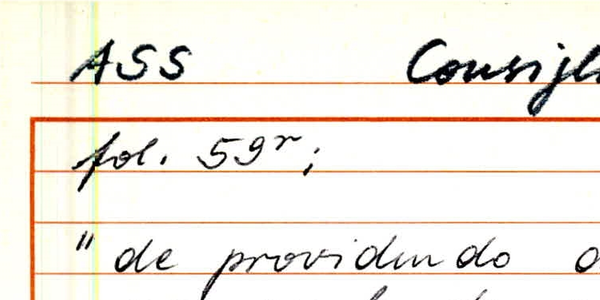 ASS Consigl
fol. 59r;
" de providendo